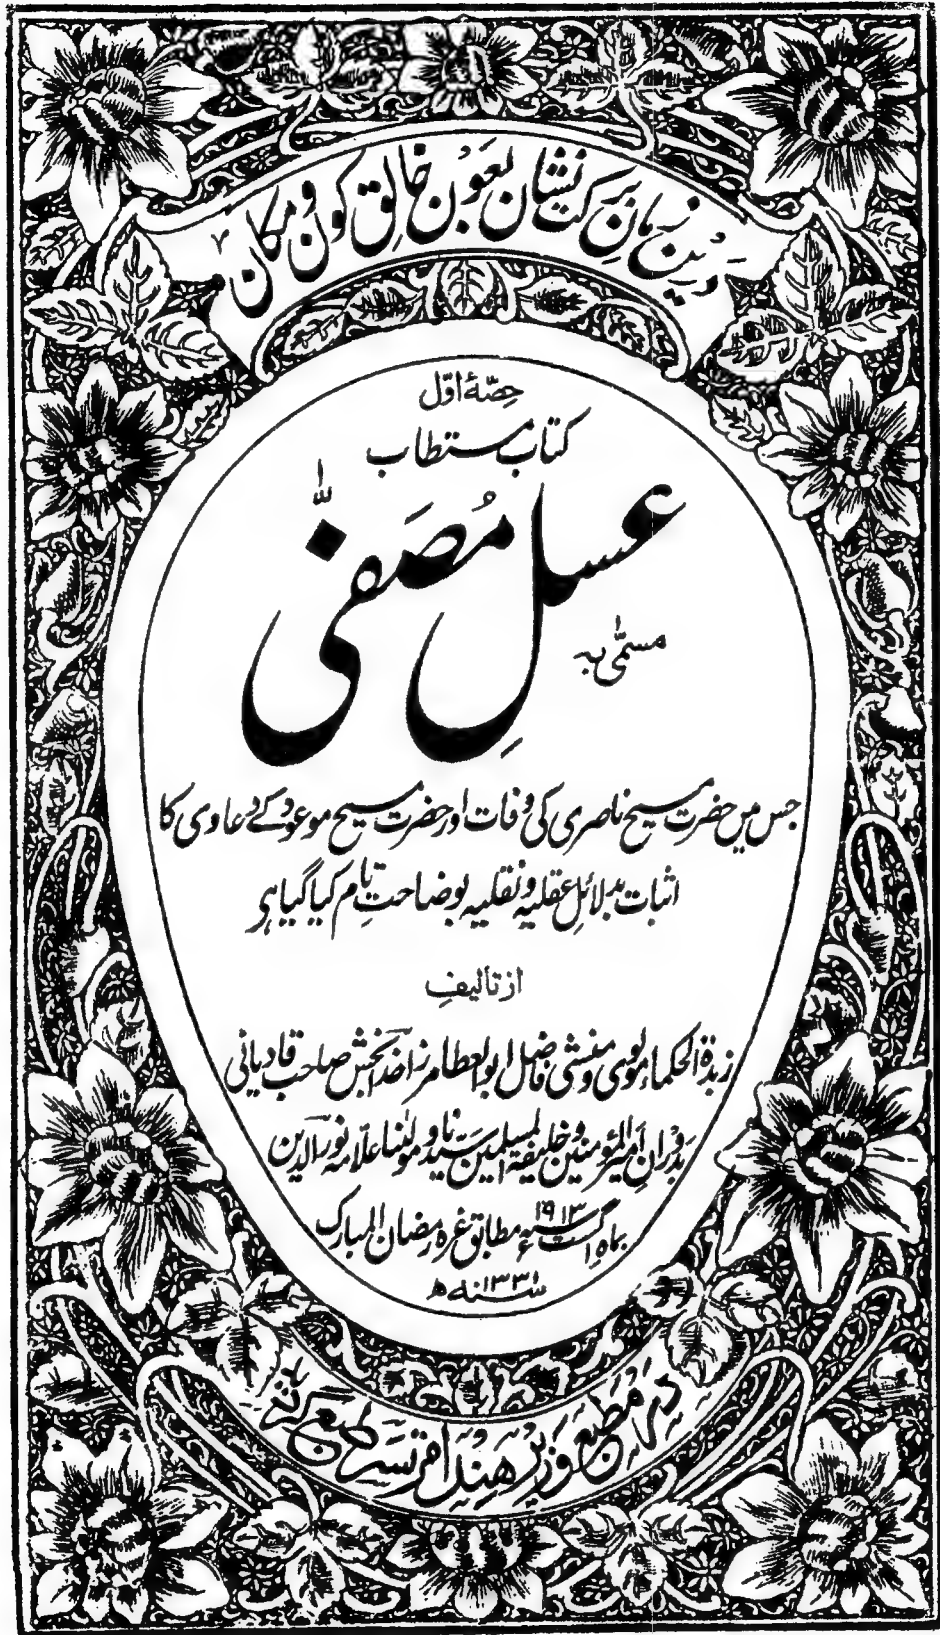 درین زمان برکت نشان بعون خالق کون و مکان
حصّۂ اوّل
کتاب مستطاب
عسل مُصَفّٰی
مسمّٰی بہ
جس میں حضرت مسیح ناصری کی وفات اور حضرت مسیح موعود کے دعاوی کا
اثبات بدلائل عقلیہ و نقلیہ بوضاحتِ تام کیا گیا ہے
از تالیفِ
زبدۃ الحکماء مولوی و منشی فاضل ابو العطا مرزا خدا بخش صاحب قادیانی
بدورانِ امیر المؤمنین و خلیفۃ المسلمین سیدنا و مولٰنا علّامہ نور الدین
بماہ اگست ۱۹۱۳ء مطابق غرہ رمضان المبارک
۱۳۳۱ھ
در مطبع وزیر ھند امرتسر طبع گردید